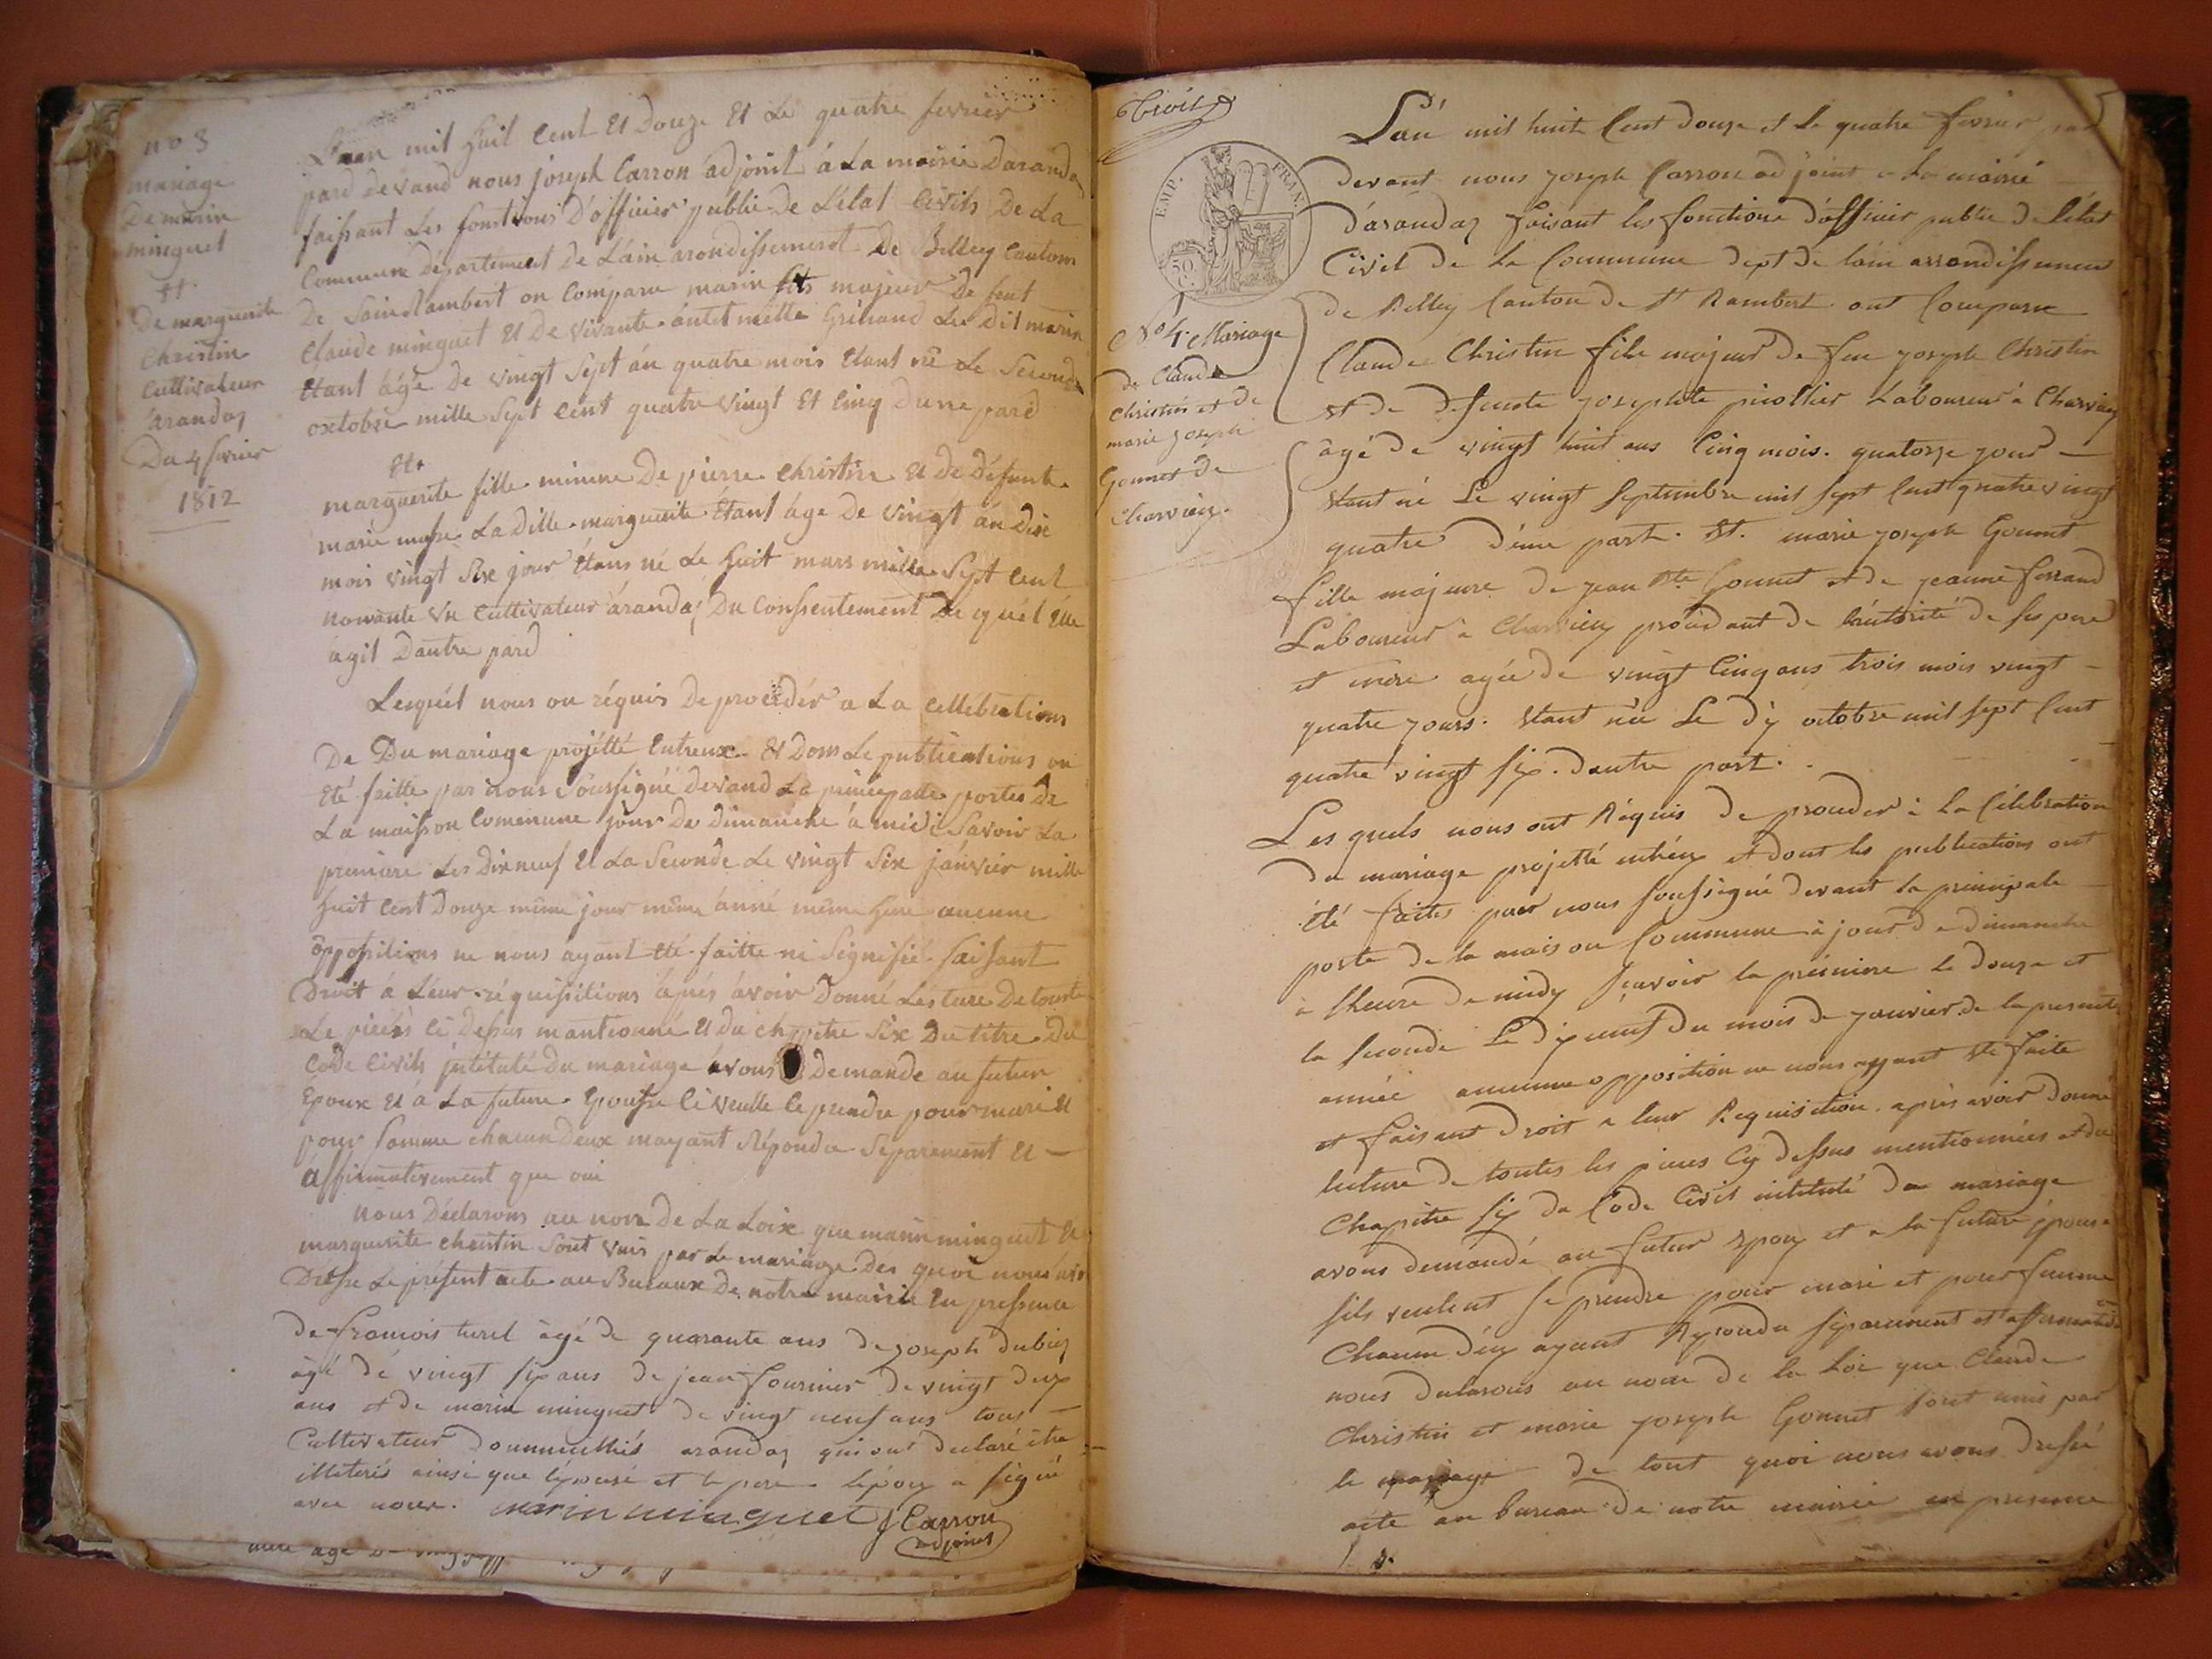 no 3
mariage
De marin
minguet
et
De marguerite
Christin
Cultivateur
àrandaz
Du 4 fevrier
1812
L'aan mil huit Cent Et Douze Et Le quatre fevrier
pard devand nous joseph Carron adjoint à La mairie Daranda
faissant Les fonctions D'officier public De L'état Civils De La
Commune département De L'ain arondissement De Belley Canton
De Saint Rambert on Comparu marin fils majeur De feut
Claude minguet Et De vivante Grinand Le Dit marin
Etant âgé de vingt Sept án quatre mois Etant né Le Second
oxtobre mille Sept Cent quatre vingt Et Cinq Dune pard
Et
marguerite fille mineure De pierre Christin Et De Défunte
marie La Ditte marguerite Etant âge De vingt án Dix
mois vingt Six jour Etans né Le huit mars mille Sept Cent
nonante un Cultivateur àrandaz Du Consentement De quél Elle
ágit Dautre pard
Lesquél nous on réquis De procédér a La Cellébrations
De Du mariage projétté Entreux Et Dons Le publications on
Eté faitte par nous Soussigné devand La principalle portes De
La maisson Commune jour De Dimanche à midi Savoir La
premiere Les Dixneuf Et La Seconde Le vingt Six jánvier mille
huit Cent Douze même jour même ànné même heure aucunne
oppositions ne nous ayant Eté faitte ni Signifié faisant
Droit á Léur réquisitions áprés ávoir Donné Lecture De toute
Le pieces Ci Dessus mantionné Et du chapitre Six Du titre Du
Code Civils intitulé Du mariage avons Demande au futur
Epoux Et á La future Epousse Ci veulle Ce prendre pour mari Et
pour famme chacun Deux mayant Répondu Séparément Et -
áffirmativement que oui
nous Déclarons au nom De La Loix que marin minguet Et
marguerite christin Sont unis par Le mariage Des quoi nous
Dresse Le présent acte au Bureaux De notre mairie En pressence
de francois turel âgé de quarante ans de joseph dubiez
âgé de vingt six ans de jean fournier de vingt deux
ans et de marin minguet de vingt neuf ans tous -
Cultivateur domicilliés arandaz qui ont declaré être
illeterés ainsi que l'épouse et le pere l'époux a signé
avec nous. marin minguet J Carron
adjoint
Trois
EMP. FRAN.
No 4. Mariage
de Claude
Christin et de
marie joseph
Gonnet de
Charvieux.
L'an mil huit Cent douze et le quatre fevrier par
devant nous joseph Carron adjoint a la mairie
d'arandaz faisant les fonctions d'officier public de l'état
Civil de la Commune dept de l'ain arrondissement
de Belley Canton de St Rambert ont Comparu
Claude Christin fils majeur de feu joseph Christin
et de defunte josephte Laboureur à Charvieux
âgé de vingt huit ans Cinq mois. quatorze jour -
Etant né Le vingt Septembre mil sept Cent quatre vingt
quatre d'une part. Et. marie joseph Gonnet
fille majeure de jean Bte Gonnet et de jeanne ferrand
Laboureur à Charvieux procédant de l'autorité de ses pere
et mere agée de vingt Cinq ans trois mois vingt -
quatre jours. Etant née Le dix octobre mil sept Cent
quatre vingt six. dautre part.
Les quels nous ont Réquis de proceder à la Célébration
du mariage projetté entreux et dont les publications ont
été faites par nous soussigné devant la principale -
porte de la maison Commune à jour de dimanche
à l'heure de midy sçavoir la premiere le douze et
la seconde Le dix neuf du mois de janvier de la presente
année aucunne opposition ne nous ayant été faite
et faisant droit a leur Requisition. après avoir donné
lecture de toutes les pieces Cy dessus mentionnées et du
Chapitre six du Code Civil intitulé du mariage
avons demandé au futur Epoux et a la future épouse
s'ils veulent se prendre pour mari et pour femme
Chacun d'eux ayant Repondu séparement et affirmativ
nous declarons au nom de la Loi que Claude
Christin et marie joseph Gonnet sont unis par
le mariage de tout quoi nous avons dressé
acte au bureau de notre mairie en presence